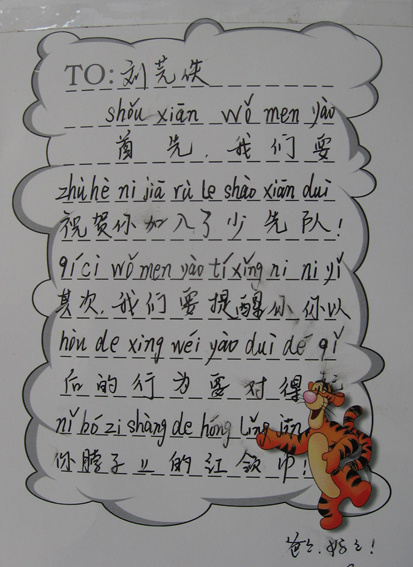 TO: 刘芫佚
shǒu xiān wǒ men yào
首先,我们要
zhù hè ni jiā rù le shào xiān duì
祝贺你加入了少先队!
qí cì wǒ men yào tí xǐng ni ni yǐ
其次,我们要提醒你你以
hòu de xing wéi yào duì dé qǐ
后的行为要对得起
nǐ bó zi shàng de hóng lǐng jīn
你脖子上的红领巾!
爸爸、妈妈!